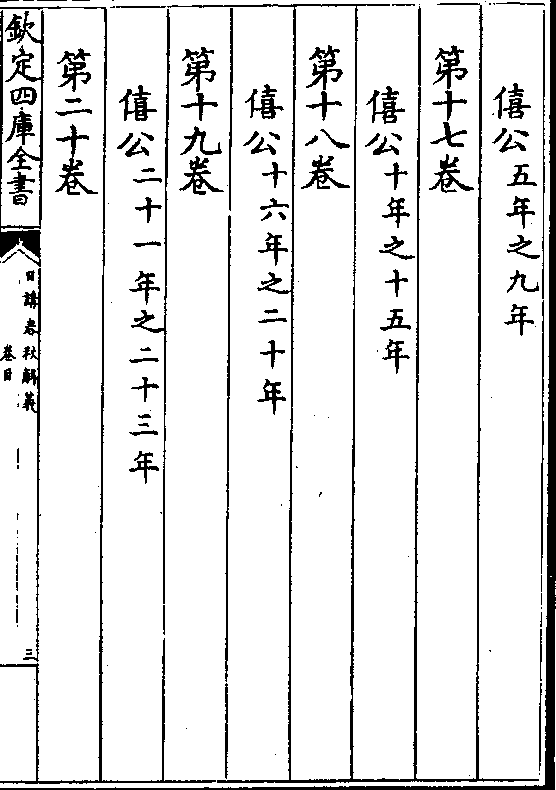 僖公五年之九年
第十七卷
僖公十年之十五年
第十八卷
僖公十六年之二十年
第十九卷
僖公二十一年之二十三年
第二十卷
欽定四庫全書
日講春秋解義
卷目
三